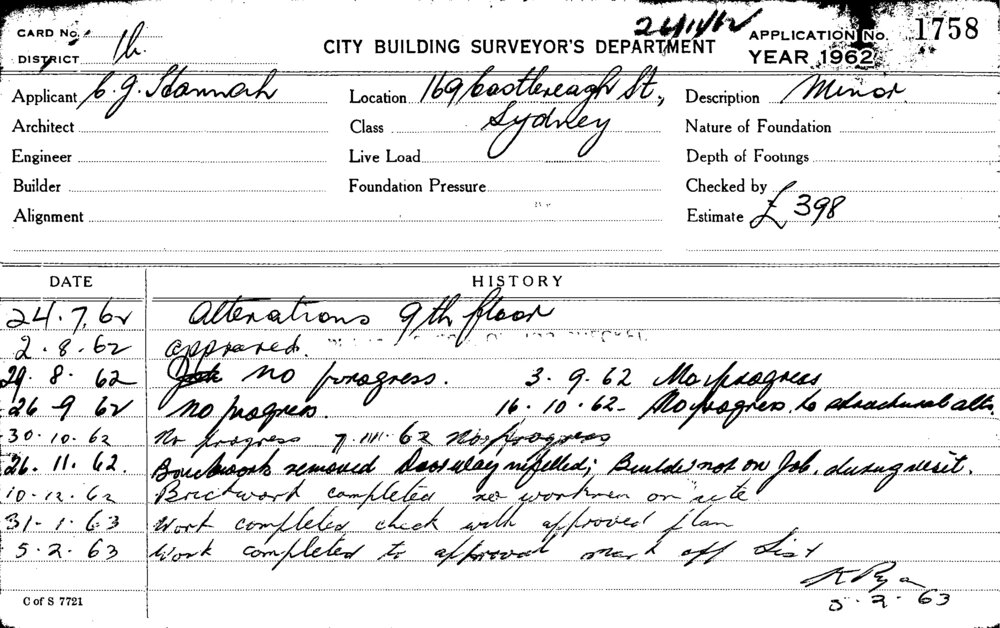 CARD No.
DISTRICT
CITY BUILDING SURVEYOR'S DEPARTMENT
APPLICATION No. 1758
YEAR 1962
Applicant C. J. Hannah
Location 169 Castlereagh St.,
Sydney
Description Minor
Architect
Class
Nature of Foundation
Engineer
Live Load
Depth of Footings
Builder
Foundation Pressure
Checked by
Alignment
Estimate £ 398
DATE HISTORY
24.7.62 Alterations 9th floor
2.8.62 approved.
29.8.62 no progress. 3.9.62 No progress
26 9 62 no progress. 16.10.62 - No progress to structural alts.
30.10.62 No progress 7.11.62 No progress
26.11.62. Brickwork removed Doorway infilled; Builder not on Job, during visit.
10-12.62 Brickwork completed no workmen on site
31-1.63 Work completed check with approved plan
5.2.63 Work completed to approval mark off list
K Ryan
5.2.63
C of S 7721